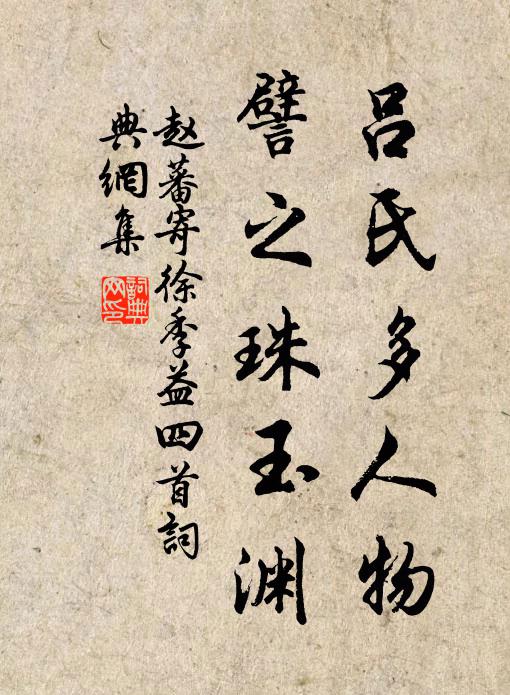 吕氏多人物
譬之珠玉渊
赵蕃寄徐季益四首詞
典網集
詞典
网印